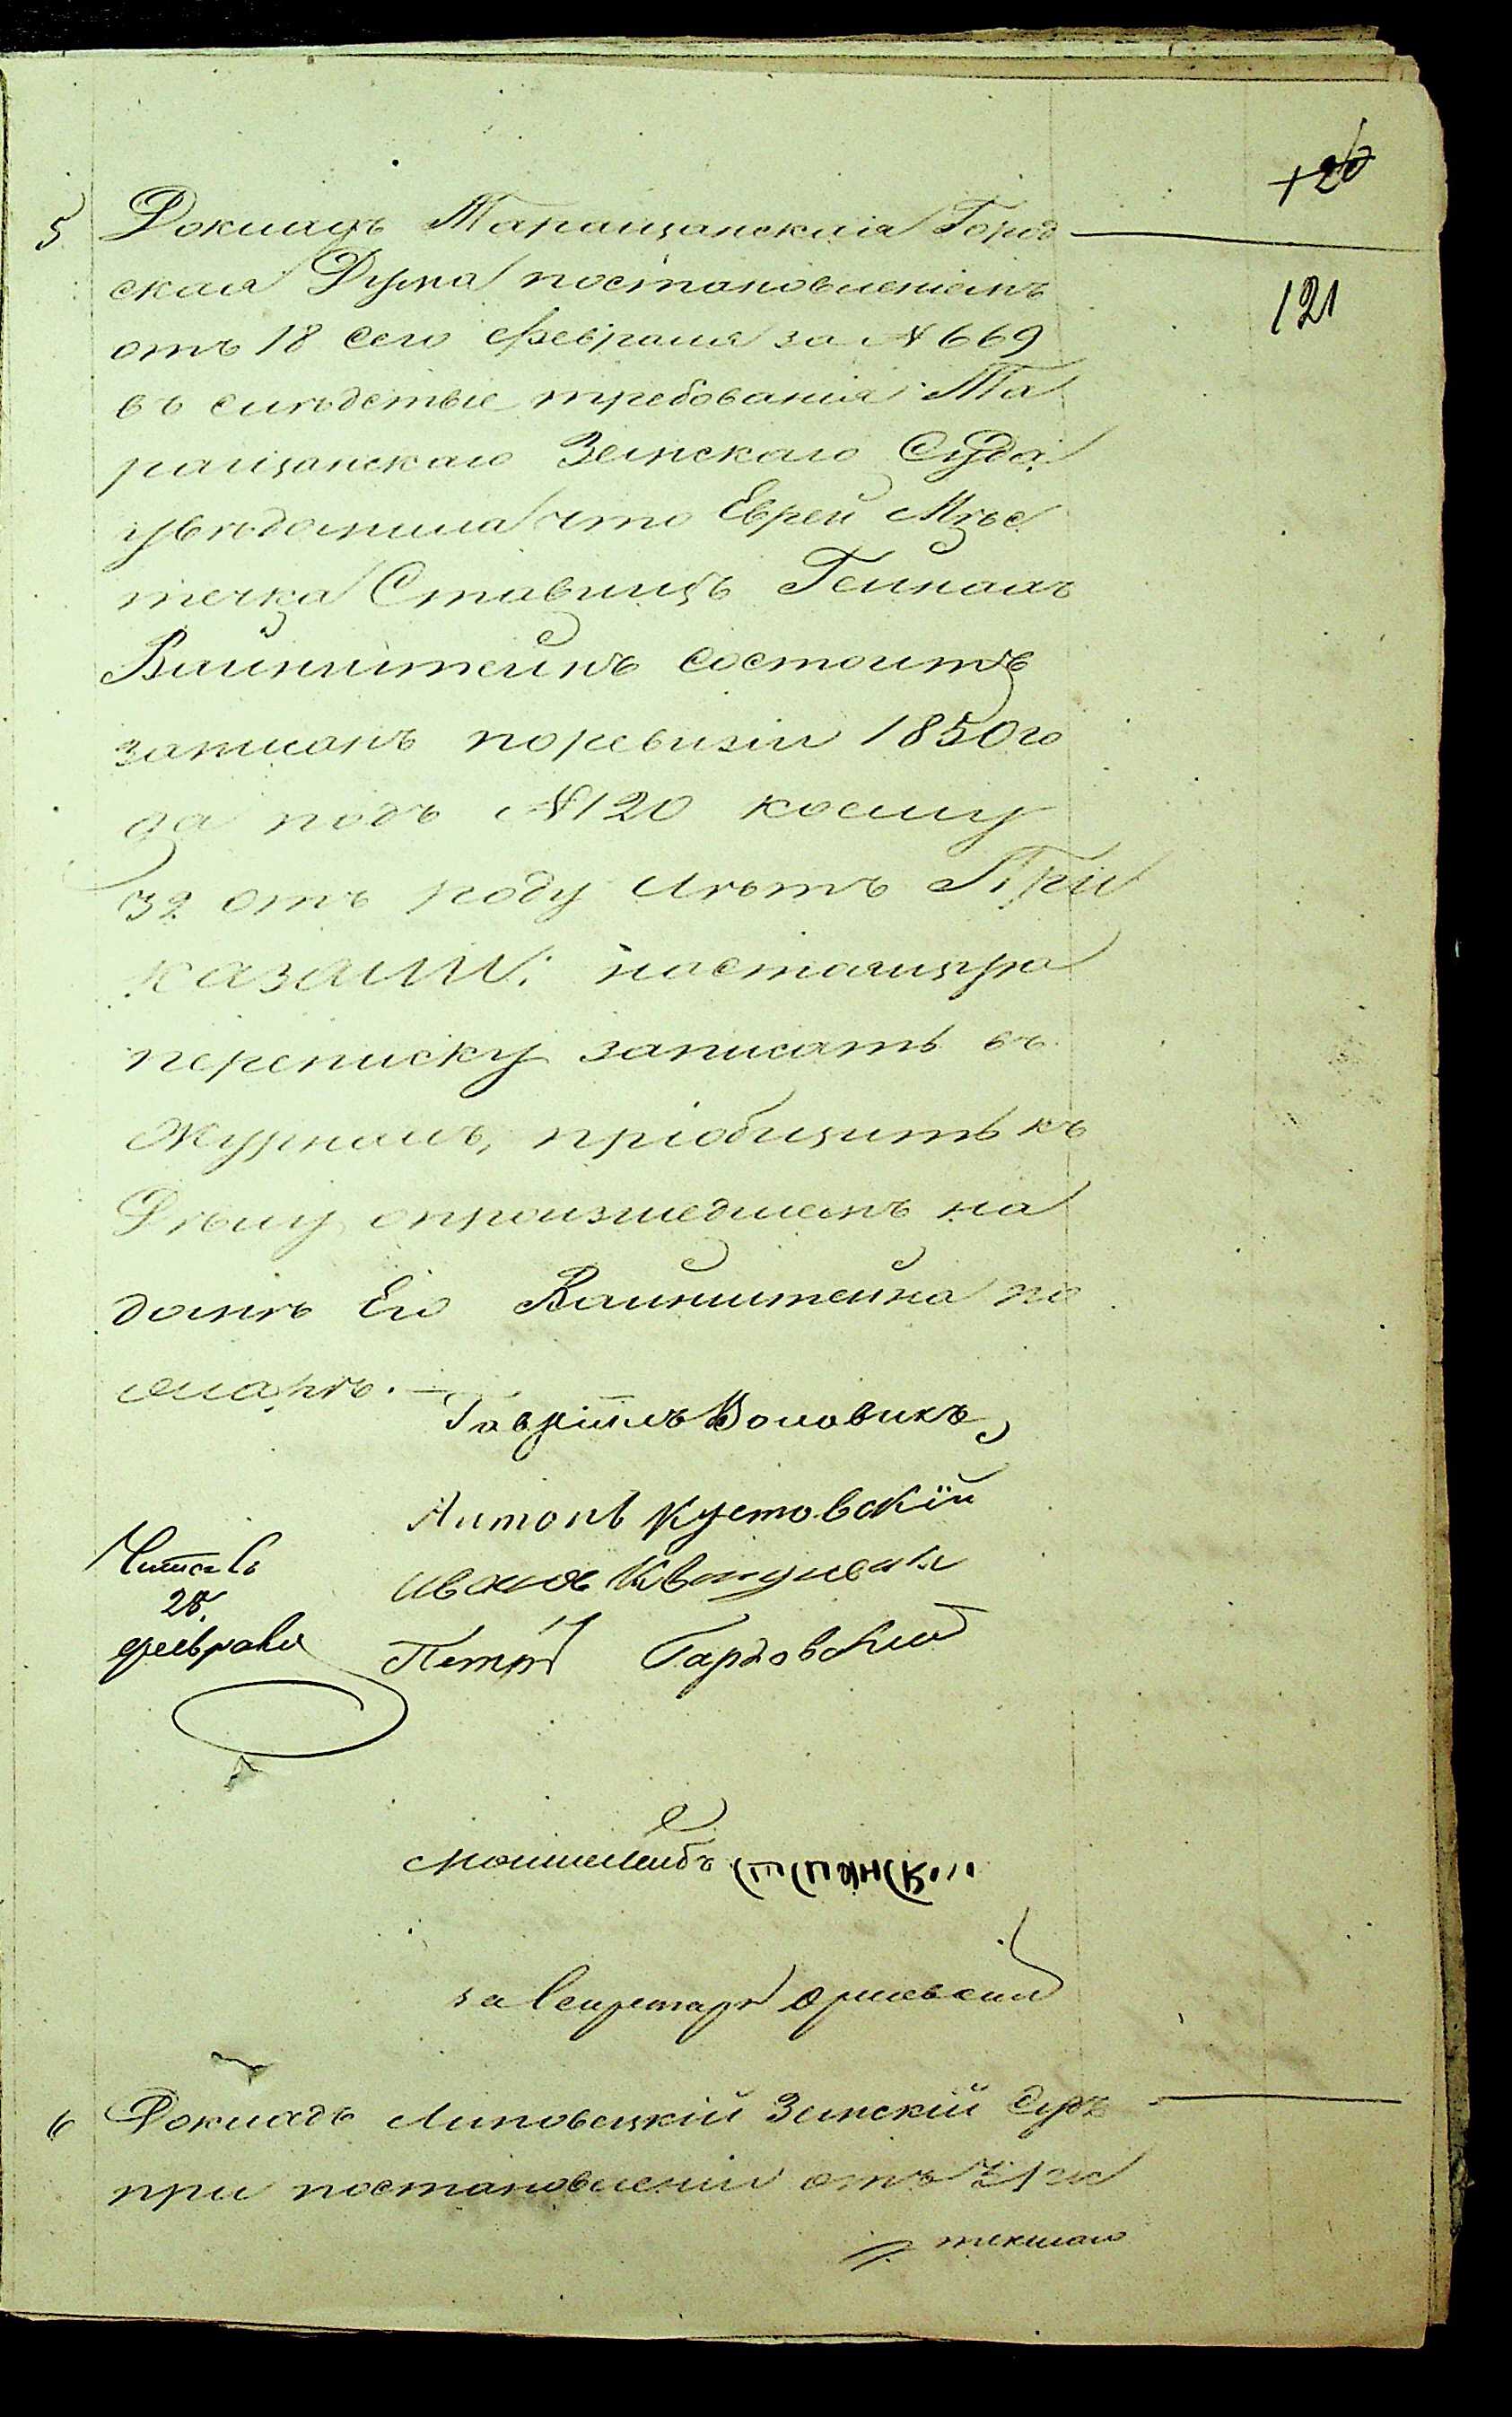 120
5 Докладъ Таращанская Город
ская Дума постановленіемъ
121
отъ 18 сего Февраля за №669
въ слѣдствіе требованія Та
ращанскаго Земскаго Суда
увѣдомила что Еврей Мѣс
течка Ставищъ
Вайнштейнъ состоитъ
записанъ поревизіи 1850го
да подъ №120 коему
32 отъ роду лѣтъ При
казали: настоящую
переписку записать въ
Журналъ, пріобщить къ
Дѣлу опроизшедшемъ на
домѣ Его Вайнштейна по
жарѣ. —
Гавріилъ Воловикъ
Антонъ Кустовскій
Читалъ
28
февраля
иванъ
Петръ
Мошко Лейбъ
за Секретаря
6 Докладъ Липовецкій Земскій Судъ
при постановленіи отъ 21го
текшаго